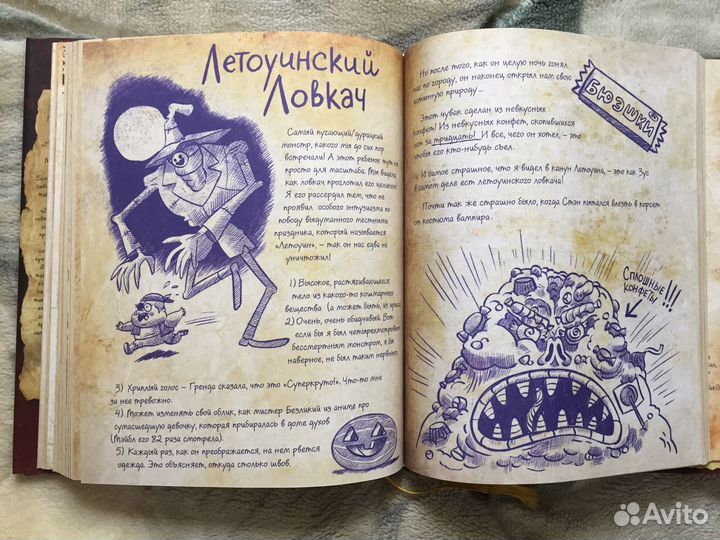 Летоуинский
Ловкач
Самый пугающий/дурацкий
монстр, какого мы до сих пор
встречали! А этот ребенок тут не
просто для масштаба. Мы видели,
как ловкач проглотил его целиком!
Я его рассердил тем, что не
проявил особого энтузиазма по
поводу выдуманного местными
праздника, который называется
«Летоуин», – так он нас едва не
уничтожил!
1) Высокое, растягивающееся
тело из какого-то кошмарного
вещества (а может быть, из
2) Очень, очень обидчивый. Вот
если бы я был четырехметровым
бессмертным монстром, я бы
наверное, не был таким нервным.
3) Хриплый голос – Гренда сказала, что это «Суперкруто!». Что-то мне
за нее тревожно.
4) Может изменять свой облик, как мистер Безликий из аниме про
сумасшедшую девочку, которая прибиралась в доме духов
(Мэйбл его 82 раза смотрела).
5) Каждый раз, как он преображается, на нем рвется
одежда. Это объясняет, откуда столько швов.
Но после того, как он целую ночь гонял
нас по городу, он наконец открыл нам свою
истинную природу...
БЮЭШКИ
Этот чувак сделан из невкусных
конфет! Из невкусных конфет, скопившихся
лет за тридцать! И все, чего он хотел, – это
чтобы его кто-нибудь съел.
И самое страшное, что я видел в канун Летоуина, – это как Зус
в самом деле ест летоуинского ловкача!
Почти так же страшно было, когда Стэн пытался влезть в корсет
от костюма вампира.
СПЛОШНЫЕ
КОНФЕТЫ!!!
Avito